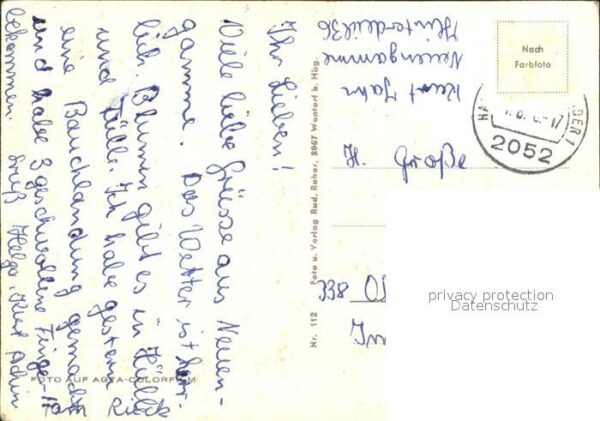 Ihr Lieben!
Viele liebe Grüsse aus Neuen-
gamme. Das Wetter ist herr-
lich. Blumen gibt es in Hülle
und Fülle. Ich habe gestern
eine Bauchlandung gemacht
und habe 3 geschwollene Finger
bekommen. Gruß Helga Kurt Achim
Kurt Jahn
Neuengamme
Hinterdeich 36
Nach
Farbfoto
2052
H. Große
338
Nr. 112 Foto u. Verlag Rud. Reher, 2057 Wentorf b. Hbg.
FOTO AUF AGFA-COLORFILM
privacy protection
Datenschutz